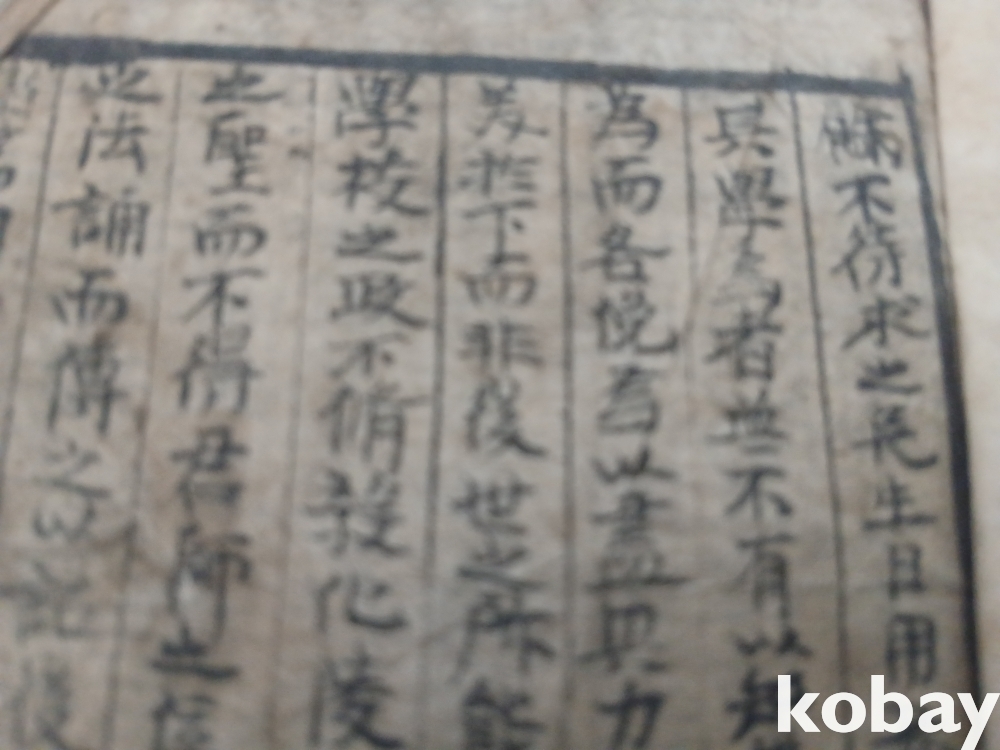 不待求之民生日用
其學焉者無不有以知
為而各俛焉以盡其力
美於下而非後世之所能
學校之政不脩教化陵
之聖而不得君師之位
之法誦而傳之以詔後
kobay